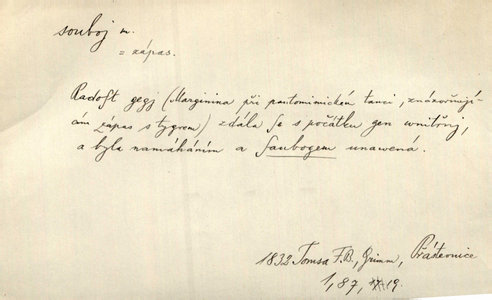 souboj m.
= zápas.
Radost gegj (Marginina při pantomimickém tanci, znázorňují-
cím zápas s tygrem) zdála se s počátku gen wnitřnj,
a byla namáháním a saubogem unawená.
1832 Tomsa F.B., Grimm, Přástewnice
1, 87, 19.